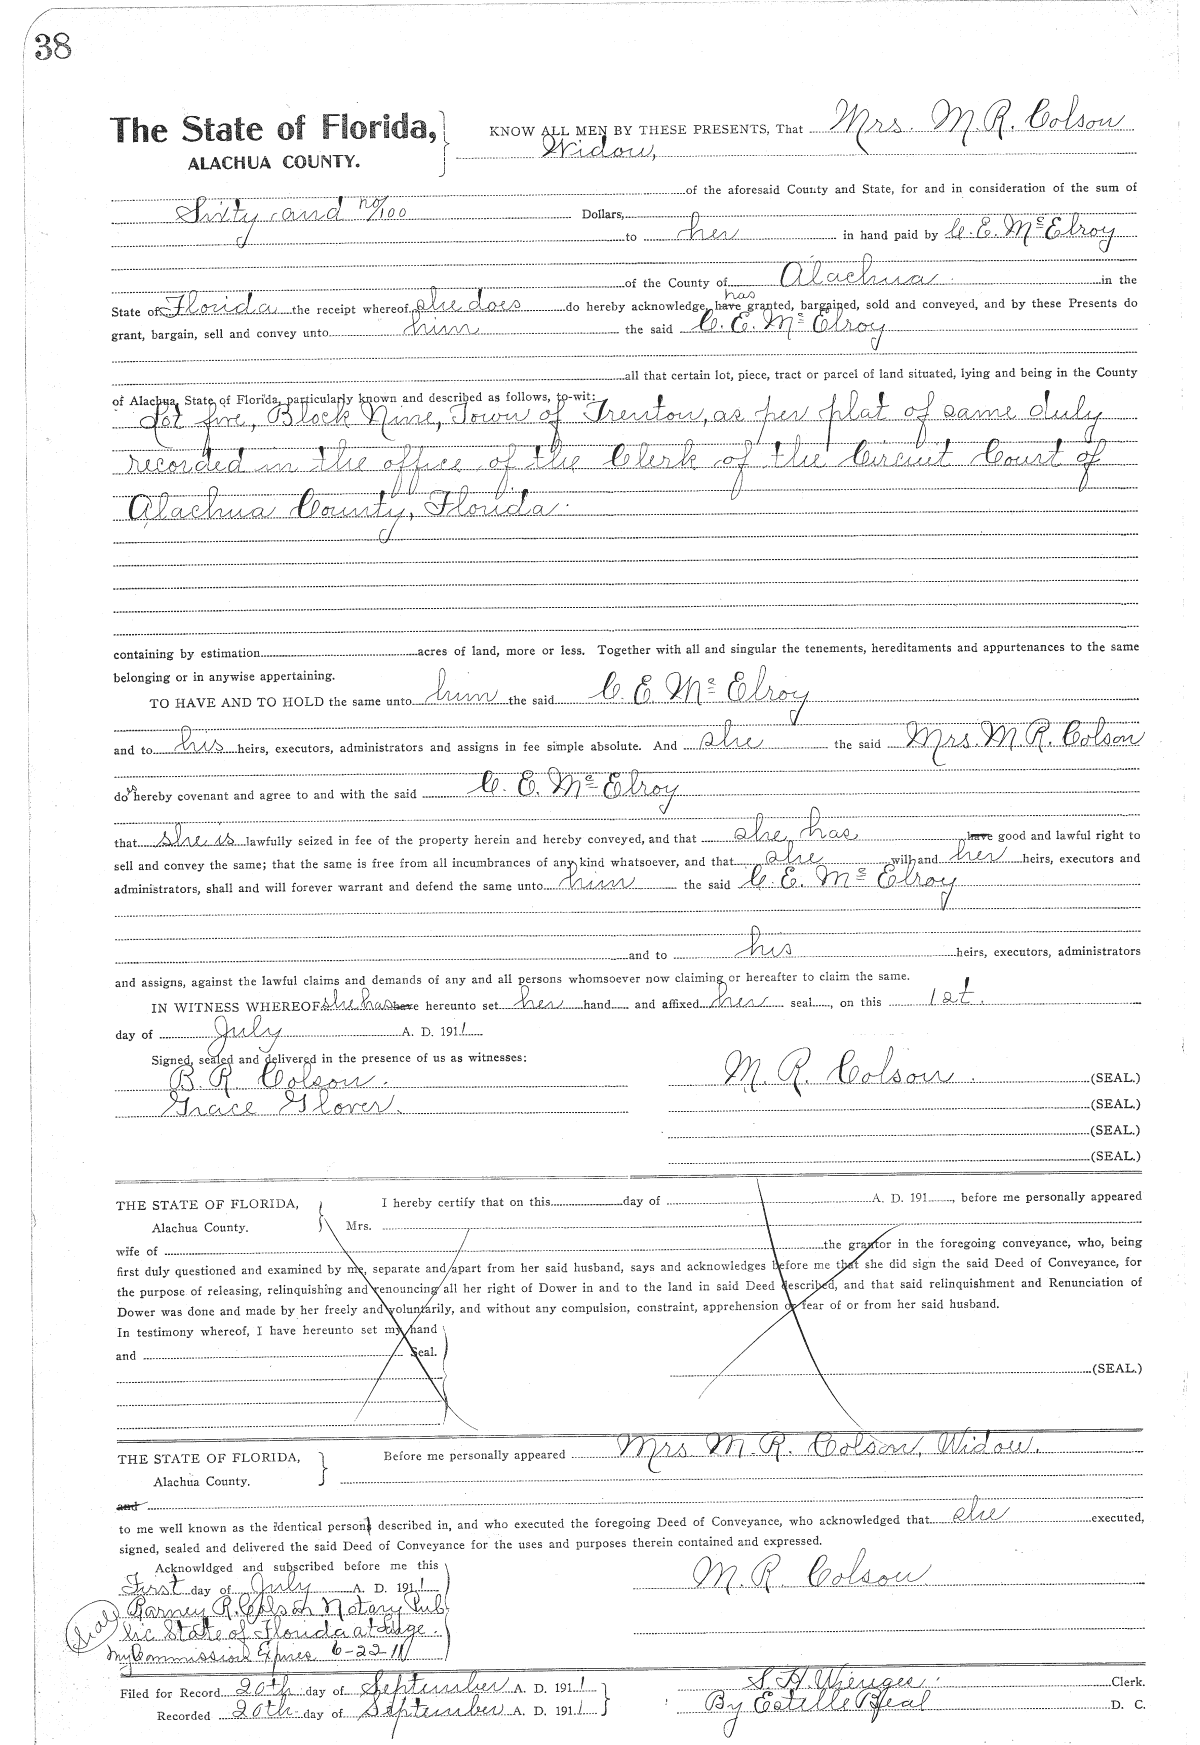 38
The State of Florida, KNOW ALL MEN BY THESE PRESENTS, That Mrs. M. R. Colson
ALACHUA COUNTY. Widow,
of the aforesaid County and State, for and in consideration of the sum of
Sixty and no/100 Dollars,
to her in hand paid by C. E. McElroy
of the County of Alachua in the
State of Florida the receipt whereof she does do hereby acknowledge, have has granted, bargained, sold and conveyed, and by these Presents do
grant, bargain, sell and convey unto him the said C. E. McElroy
all that certain lot, piece, tract or parcel of land situated, lying and being in the County
of Alachua, State of Florida, particularly known and described as follows, to-wit:
Lot five, Block Nine, Town of Trenton, as per plat of same duly
recorded in the office of the Clerk of the Circuit Court of
Alachua County, Florida.
containing by estimation acres of land, more or less. Together with all and singular the tenements, hereditaments and appurtenances to the same
belonging or in anywise appertaining.
TO HAVE AND TO HOLD the same unto him the said C. E. McElroy
and to his heirs, executors, administrators and assigns in fee simple absolute. And she the said Mrs. M. R. Colson
does hereby covenant and agree to and with the said C. E. McElroy
that she is lawfully seized in fee of the property herein and hereby conveyed, and that she has have good and lawful right to
sell and convey the same; that the same is free from all incumbrances of any kind whatsoever, and that she will and her heirs, executors and
administrators, shall and will forever warrant and defend the same unto him the said C. E. McElroy
and to his heirs, executors, administrators
and assigns, against the lawful claims and demands of any and all persons whomsoever now claiming or hereafter to claim the same.
IN WITNESS WHEREOF she has have hereunto set her hand and affixed her seal, on this 1st.
day of July A. D. 1911
Signed, sealed and delivered in the presence of us as witnesses:
B. R. Colson. M. R. Colson. (SEAL.)
Grace Glover. (SEAL.)
(SEAL.)
(SEAL.)
THE STATE OF FLORIDA, I hereby certify that on this day of A. D. 191 , before me personally appeared
Alachua County. Mrs.
wife of the grantor in the foregoing conveyance, who, being
first duly questioned and examined by me, separate and apart from her said husband, says and acknowledges before me that she did sign the said Deed of Conveyance, for
the purpose of releasing, relinquishing and renouncing all her right of Dower in and to the land in said Deed described, and that said relinquishment and Renunciation of
Dower was done and made by her freely and voluntarily, and without any compulsion, constraint, apprehension or fear of or from her said husband.
In testimony whereof, I have hereunto set my hand
and Seal.
(SEAL.)
THE STATE OF FLORIDA, Before me personally appeared Mrs M. R. Colson, Widow.
Alachua County.
and
to me well known as the identical persons described in, and who executed the foregoing Deed of Conveyance, who acknowledged that she executed,
signed, sealed and delivered the said Deed of Conveyance for the uses and purposes therein contained and expressed.
Acknowldged and subscribed before me this
First day of July A. D. 1911 M. R. Colson
Barney R. Colson Notary Pub
(Seal) lic State of Florida at Large.
My Commission Expires 6-22-11
Filed for Record 20th day of September A. D. 1911 S. H. Wienges. Clerk.
Recorded 20th day of September A. D. 1911 By Estelle Beal D. C.